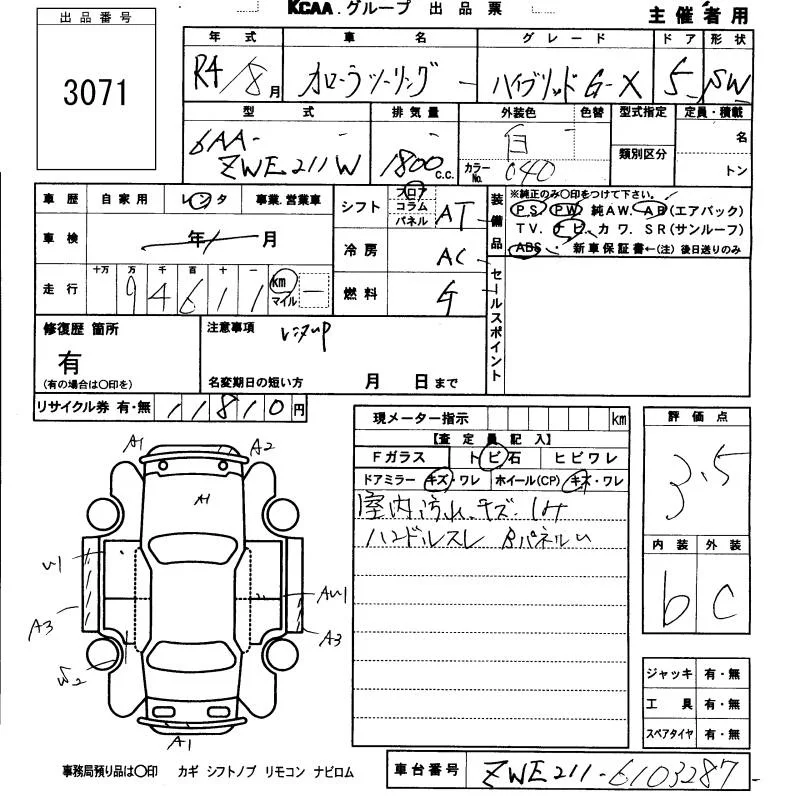 出品番号
3071
KCAA.グループ 出品票
主催者用
年式 車名 グレード ドア 形状
R4/8月 カローラツーリング ハイブリッドG-X 5 SW
型式 排気量 外装色 色替 型式指定 定員・積載
6AA-ZWE211W 1800 c.c. 白 カラーNo. 040 類別区分 名 トン
車歴 自家用 レンタ 事業・営業車
車検 年 月
走行 十万 万 千 百 十 一 km マイル
94611
シフト フロア コラム パネル AT
冷房 AC
燃料 G
装備品 ※純正のみ〇印をつけて下さい。
P.S. P.W. 純AW. AB(エアバック)
TV. ナビ. カワ. SR(サンルーフ)
ABS. 新車保証書←(注)後日送りのみ
セールスポイント
修復歴 箇所
有
(有の場合は〇印を)
注意事項 レンタup
名変期日の短い方 月 日まで
リサイクル券 有・無 11810円
現メーター指示 km
【査定員記入】
Fガラス トビ石 ヒビワレ
ドアミラー キズ・ワレ ホイール(CP) キズ・ワレ
室内汚れ.キズ.シミ
ハンドルスレ BパネルU
評価点
3.5
内装 外装
b C
ジャッキ 有・無
工具 有・無
スペアタイヤ 有・無
A1 A2
A1
U1
AU1
A3 A3
A1
事務局預り品は〇印 カギ シフトノブ リモコン ナビロム
車台番号 ZWE211-6103287